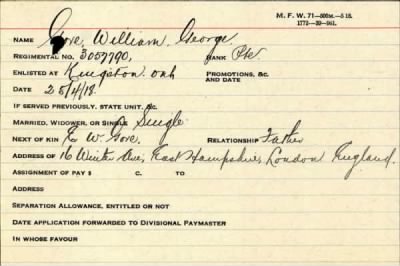 M. F. W. 71—500M.—5 18.
1772—39—941.
NAME Gore, William George.
REGIMENTAL NO. 3057790, RANK Pte.
ENLISTED AT Kingston Ont PROMOTIONS, &C.
AND DATE
DATE 25/4/18.
IF SERVED PREVIOUSLY, STATE UNIT, &C.
MARRIED, WIDOWER, OR SINGLE Single
NEXT OF KIN E. W. Gore. RELATIONSHIP Father
ADDRESS OF 16 Winter Ave, East Hampshire, London England.
ASSIGNMENT OF PAY $ C. TO
ADDRESS
SEPARATION ALLOWANCE, ENTITLED OR NOT
DATE APPLICATION FORWARDED TO DIVISIONAL PAYMASTER
IN WHOSE FAVOUR